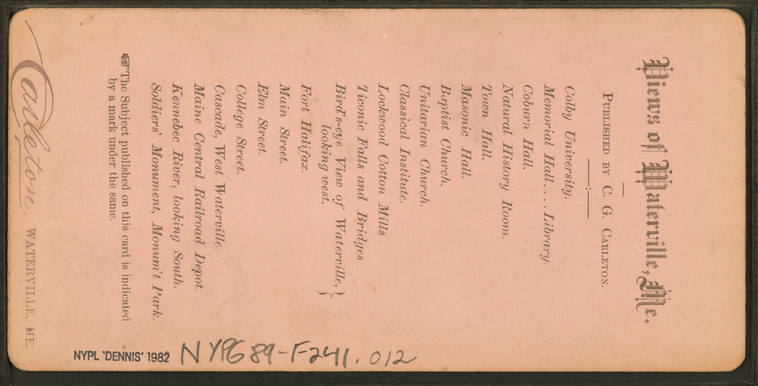 Views of Waterville, Me.
PUBLISHED BY C. G. CARLETON.
Colby University.
Memorial Hall.... Library.
Coburn Hall.
Natural History Room.
Town Hall.
Masonic Hall.
Baptist Church.
Unitarian Church.
Classical Institute.
Lockwood Cotton Mills
Ticonic Falls and Bridges
Bird's-eye View of Waterville, }
looking west. }
Fort Halifax.
Main Street.
Elm Street.
College Street.
Cascade, West Waterville.
Maine Central Railroad Depot.
Kennebec River, looking South.
Soldiers' Monument, Monum't Park.
☞ The Subject published on this card is indicated
by a mark under the same.
Carleton, WATERVILLE, ME.
NYPL 'DENNIS' 1982 NYPG89-F241.012